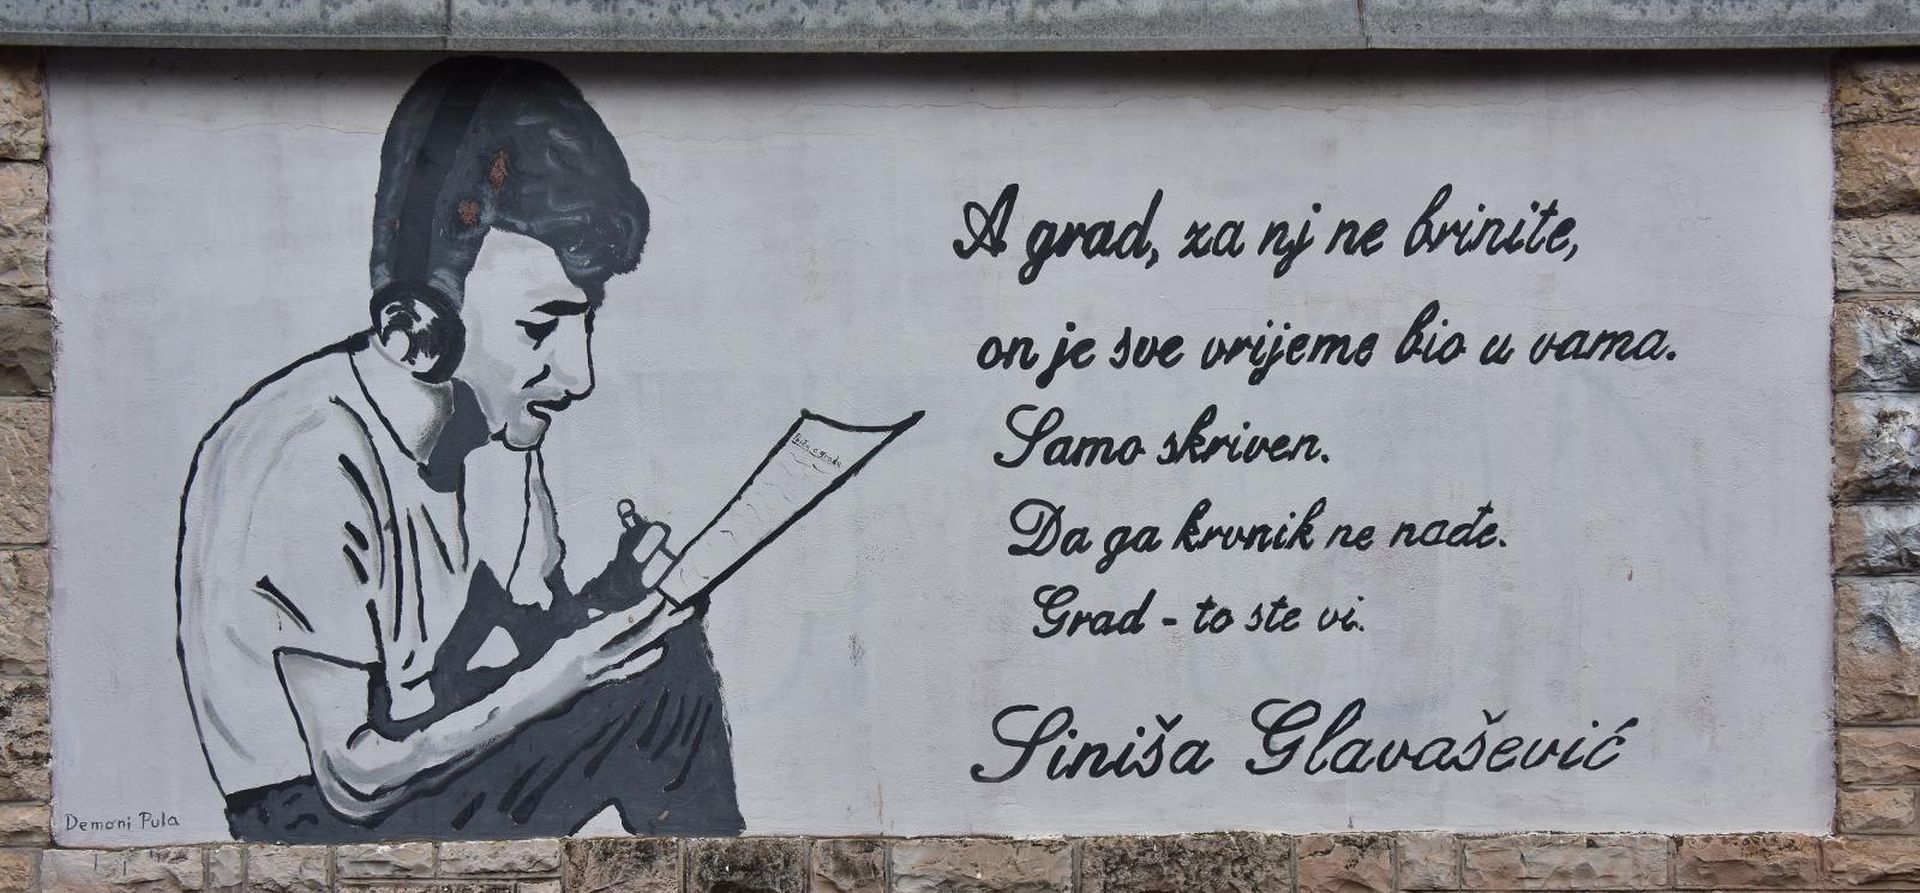 A grad, za nj ne brinite,
on je sve vrijeme bio u vama.
Samo skriven.
Da ga krvnik ne nađe.
Grad - to ste vi.
Siniša Glavašević
Demoni Pula